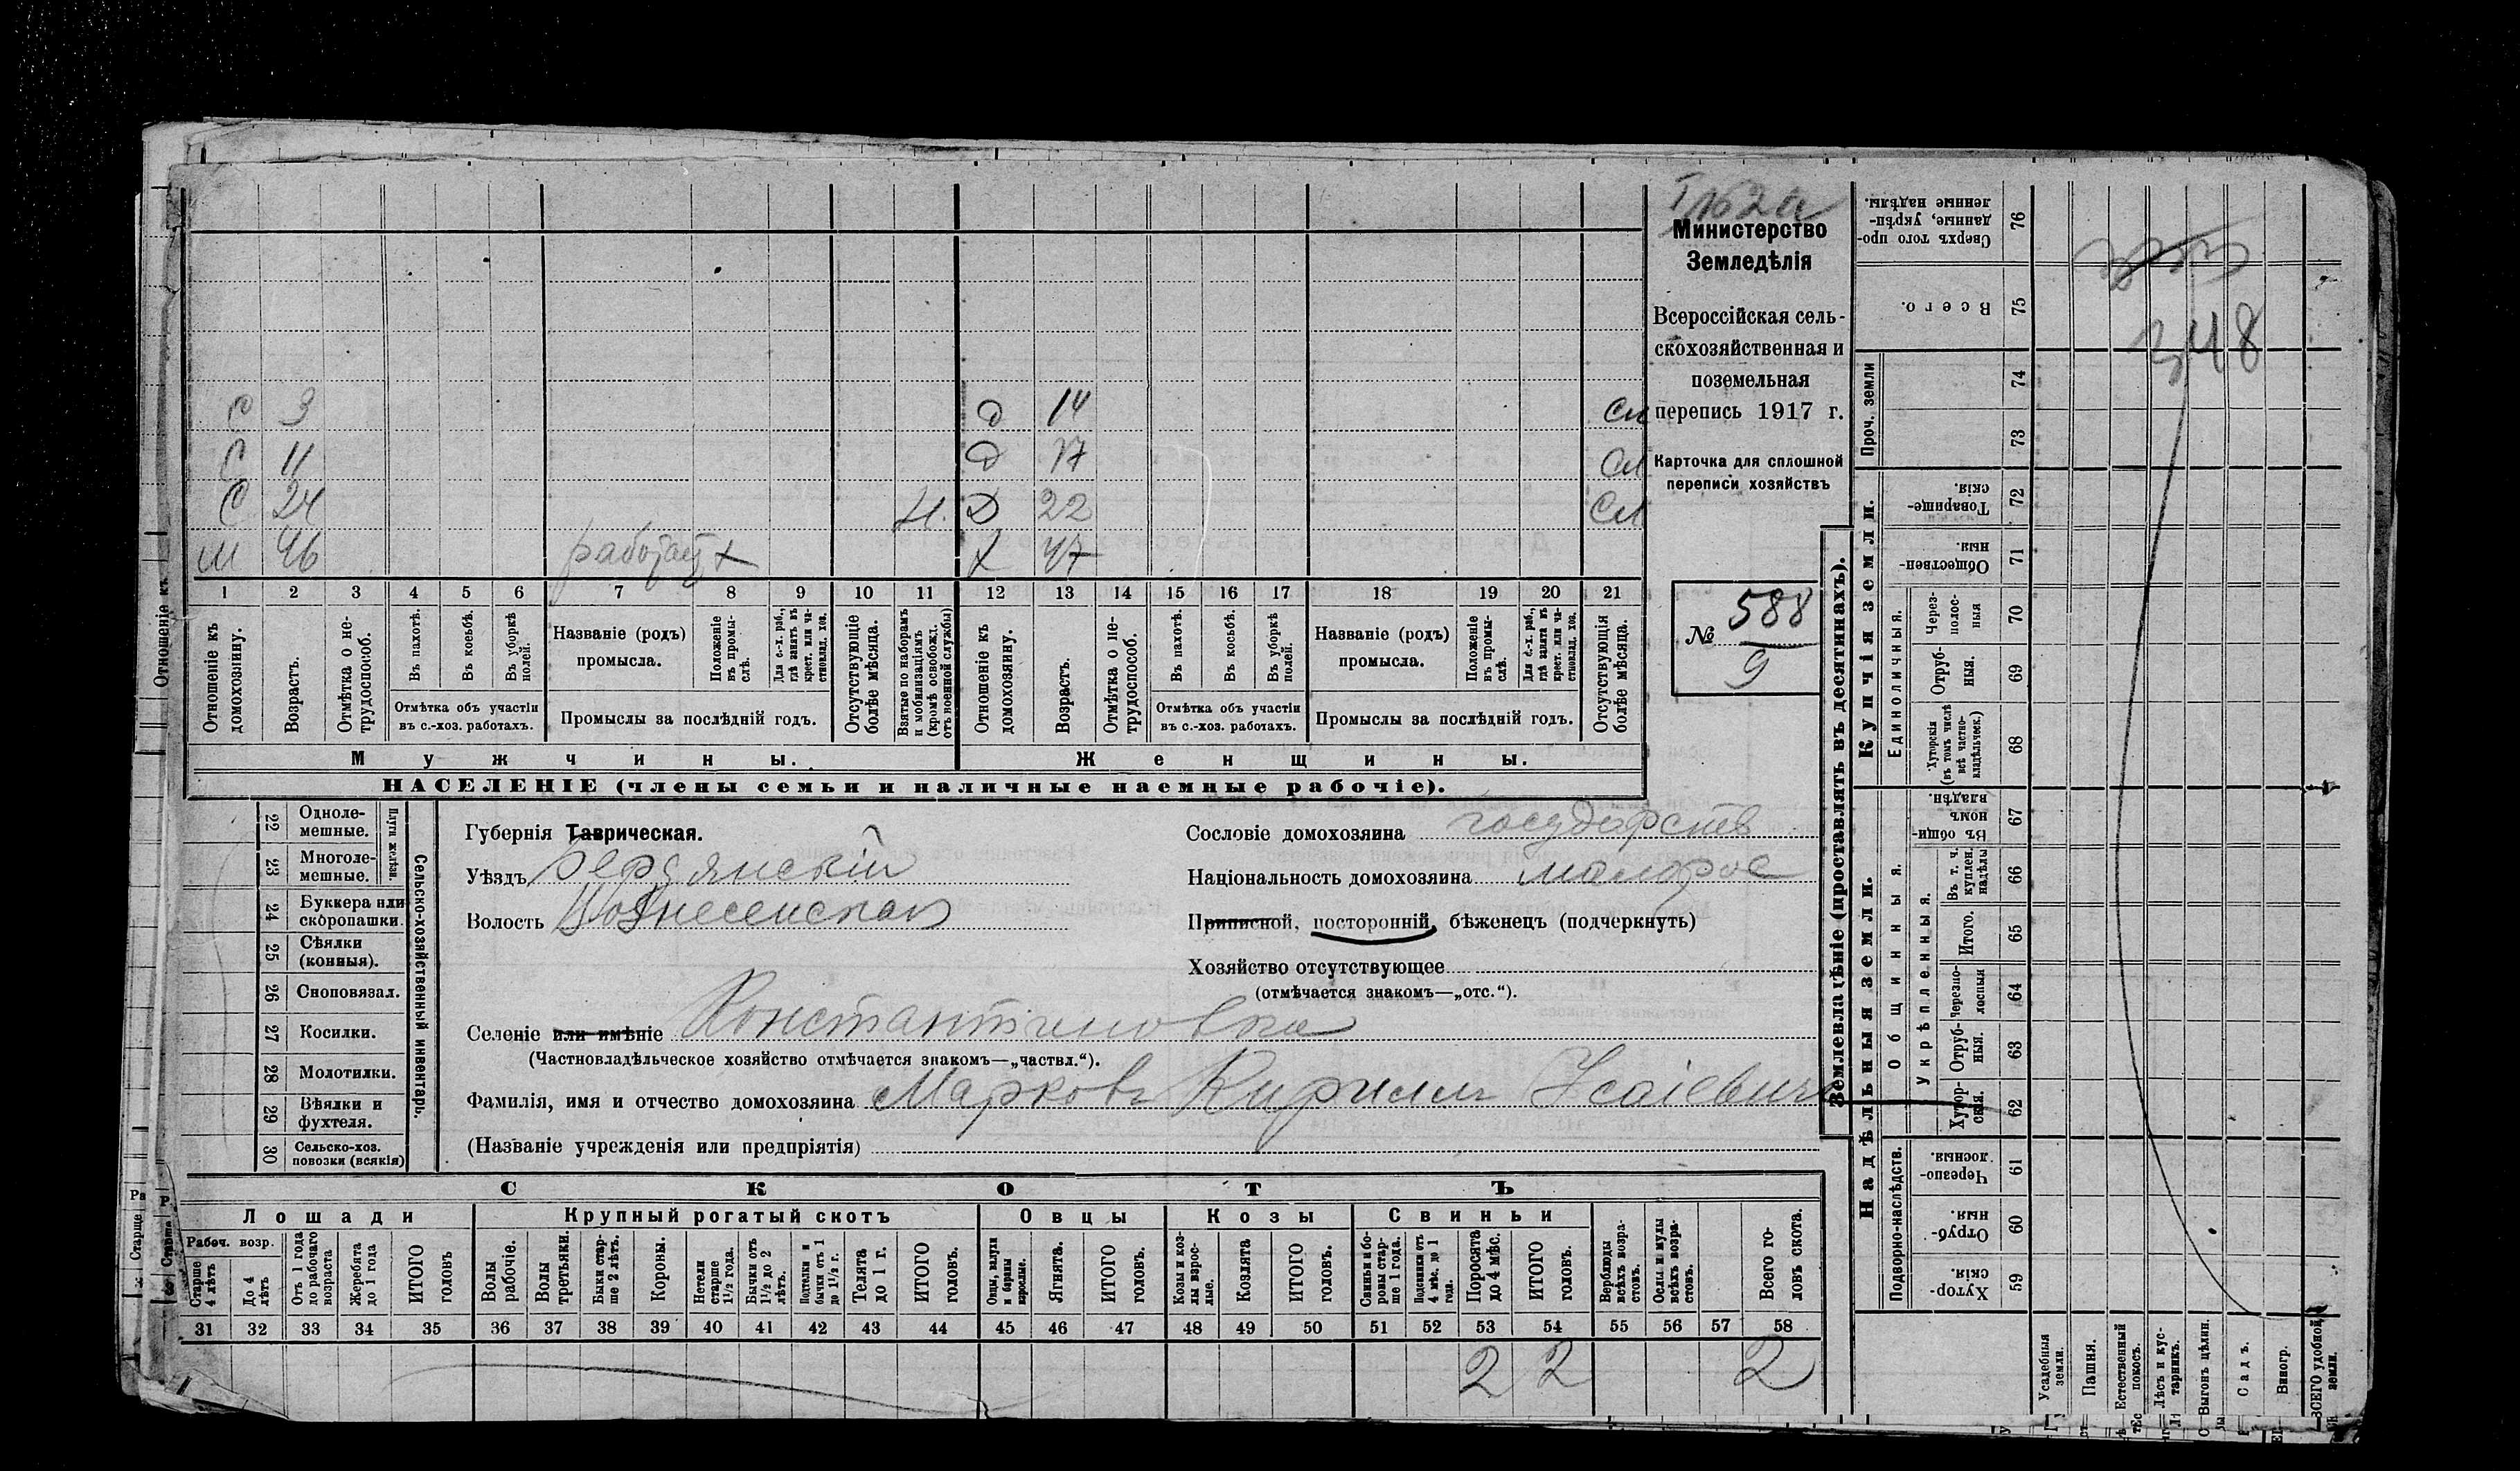 162а
Министерство
Земледѣлія
Всероссійская сель-
скохозяйственная и
поземельная
перепись 1917 г.
Карточка для сплошной
переписи хозяйствъ
№ 588
9
С 3 Д 14 Сл
С 11 Д 17 Сл
С 24 Н. Д 22 Сл
М 46 работает + Х 47
1 2 3 4 5 6 7 8 9 10 11 12 13 14 15 16 17 18 19 20 21
Отношеніе къ домохозяину.
Возрастъ.
Отмѣтка о не-трудоспособ.
Въ пахотѣ.
Въ косьбѣ.
Въ уборкѣ полей.
Отмѣтка объ участіи
въ с.-хоз. работахъ.
Названіе (родъ)
промысла.
Положеніе въ промы-слѣ.
Для с.-х. раб., гдѣ занятъ въ крест. или ча-стновлад. хоз.
Промыслы за послѣдній годъ.
Отсутствующіе болѣе мѣсяца.
Взятые по наборамъ и мобилизаціямъ (кромѣ освобожд. отъ военной службы)
Отношеніе къ домохозяину.
Возрастъ.
Отмѣтка о не-трудоспособ.
Въ пахотѣ.
Въ косьбѣ.
Въ уборкѣ полей.
Отмѣтка объ участіи
въ с.-хоз. работахъ.
Названіе (родъ)
промысла.
Положеніе въ промы-слѣ.
Для с.-х. раб., гдѣ занята въ крест. или ча-стновлад. хоз.
Промыслы за послѣдній годъ.
Отсутствующія болѣе мѣсяца.
Мужчины. Женщины.
НАСЕЛЕНІЕ (члены семьи и наличные наемные рабочіе).
22 Одноле-мешные.
23 Многоле-мешные.
Плуги желѣзн.
24 Буккера или скоропашки.
25 Сѣялки (конныя).
26 Сноповязал.
27 Косилки.
28 Молотилки.
29 Вѣялки и фухтеля.
30 Сельско-хоз. повозки (всякія)
Сельско-хозяйственный инвентарь.
Губернія Таврическая.
Уѣздъ Бердянскій
Волость Вознесенская
Сословіе домохозяина государств
Національность домохозяина малорос
Приписной, посторонній, бѣженецъ (подчеркнуть)
Хозяйство отсутствующее
(отмѣчается знакомъ—„отс.“).
Селеніе или имѣніе Константиновка
(Частновладѣльческое хозяйство отмѣчается знакомъ—„частвл.“).
Фамилія, имя и отчество домохозяина Марковъ Кириллъ Исаіевичъ
(Названіе учрежденія или предпріятія)
СКОТЪ
Лошади Крупный рогатый скотъ Овцы Козы Свиньи
Рабоч. возр.
Старше 4 лѣтъ
До 4 лѣтъ
Отъ 1 года до рабочаго возраста
Жеребята до 1 года
ИТОГО головъ
Волы рабочіе.
Волы третьяки.
Быки стар-ше 2 лѣтъ.
Коровы.
Нетели старше 1½ года.
Бычки отъ 1½ до 2 лѣтъ.
Подтелки и бычки отъ 1 до 1½ г.
Телята до 1 г.
ИТОГО головъ.
Овцы, валухи и бараны взрослые.
Ягнята.
ИТОГО головъ.
Козы и коз-лы взрос-лые.
Козлята
ИТОГО головъ.
Свиньи и бо-ровы стар-ше 1 года.
Подсвинки отъ 4 мѣс. до 1 года.
Поросята до 4 мѣс.
ИТОГО головъ.
Верблюды всѣхъ возра-стовъ.
Ослы и мулы всѣхъ возра-стовъ.
Всего го-ловъ скота.
31 32 33 34 35 36 37 38 39 40 41 42 43 44 45 46 47 48 49 50 51 52 53 54 55 56 57 58
2 2 2
Землевладѣніе (проставлять въ десятинахъ).
Купчія земли.
Надѣльныя земли.
Сверхъ того про-данные, укрѣп-ленные надѣлы. 76
Всего. 75
Проч. земли 74
73
Товарище-скія. 72
Обществен-ныя. 71
Единоличныя.
Через-полос-ныя 70
Отруб-ныя. 69
Хуторскія (въ томъ числѣ всѣ частно-владѣльческ.) 68
Общинныя.
Въ общин-номъ владѣн. 67
Укрѣпленныя.
Въ т. ч. куплен. надѣлы 66
Итого. 65
Черезпо-лосныя 64
Отруб-ныя. 63
Хутор-скія. 62
Подворно-наслѣдств.
Черезпо-лосныя. 61
Отруб-ныя. 60
Хутор-скія. 59
Усадебныя земли.
Пашня.
Естественный покосъ.
Лѣсъ и кус-тарникъ.
Выгонъ цѣлин.
Садъ.
Виногр.
ВСЕГО удобной земли.
348
Отношеніе къ
Старше